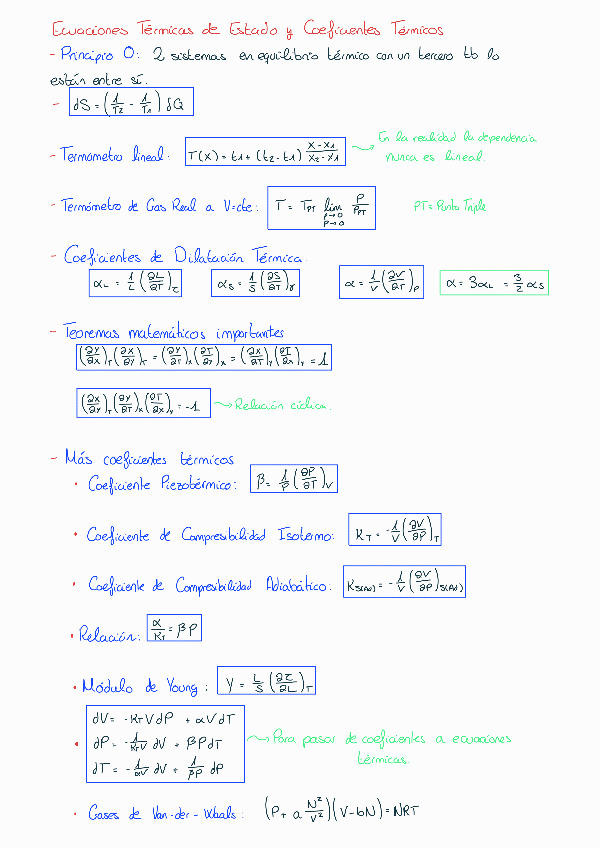 Ecuaciones Térmicas de Estado y Coeficientes Térmicos
- Principio 0: 2 sistemas en equilibrio térmico con un tercero tb lo
están entre sí.
- dS = (1/T2 - 1/T1) δQ
- Termómetro lineal: T(x) = t1 + (t2 - t1) (x - x1)/(x2 - x1) → En la realidad la dependencia
nunca es lineal.
- Termómetro de Gas Real a V=cte: T = T_PT lim P/P_PT PT = Punto Triple
- Coeficientes de Dilatación Térmica.
α_L = 1/L (∂L/∂T)_τ α_S = 1/S (∂S/∂T)_γ α = 1/V (∂V/∂T)_P α = 3α_L = 3/2 α_S
- Teoremas matemáticos importantes
(∂y/∂x)_T (∂x/∂y)_T = (∂y/∂T)_x (∂T/∂y)_x = (∂x/∂T)_y (∂T/∂x)_y = 1
(∂x/∂y)_T (∂y/∂T)_x (∂T/∂x)_y = -1 → Relación cíclica.
- Más coeficientes térmicos
• Coeficiente Piezotérmico: β = 1/P (∂P/∂T)_V
• Coeficiente de Compresibilidad Isotermo: K_T = -1/V (∂V/∂P)_T
• Coeficiente de Compresibilidad Adiabático: K_S(Ad) = -1/V (∂V/∂P)_S(Ad)
• Relación: α/K_T = βP
• Módulo de Young: Y = L/S (∂τ/∂L)_T
• dV = -K_T V dP + αV dT
dP = -1/(K_T V) dV + βP dT → Para pasar de coeficientes a ecuaciones
térmicas.
dT = -1/(αV) dV + 1/(βP) dP
• Gases de Van-der-Waals: (P + a N²/V²)(V - bN) = NRT